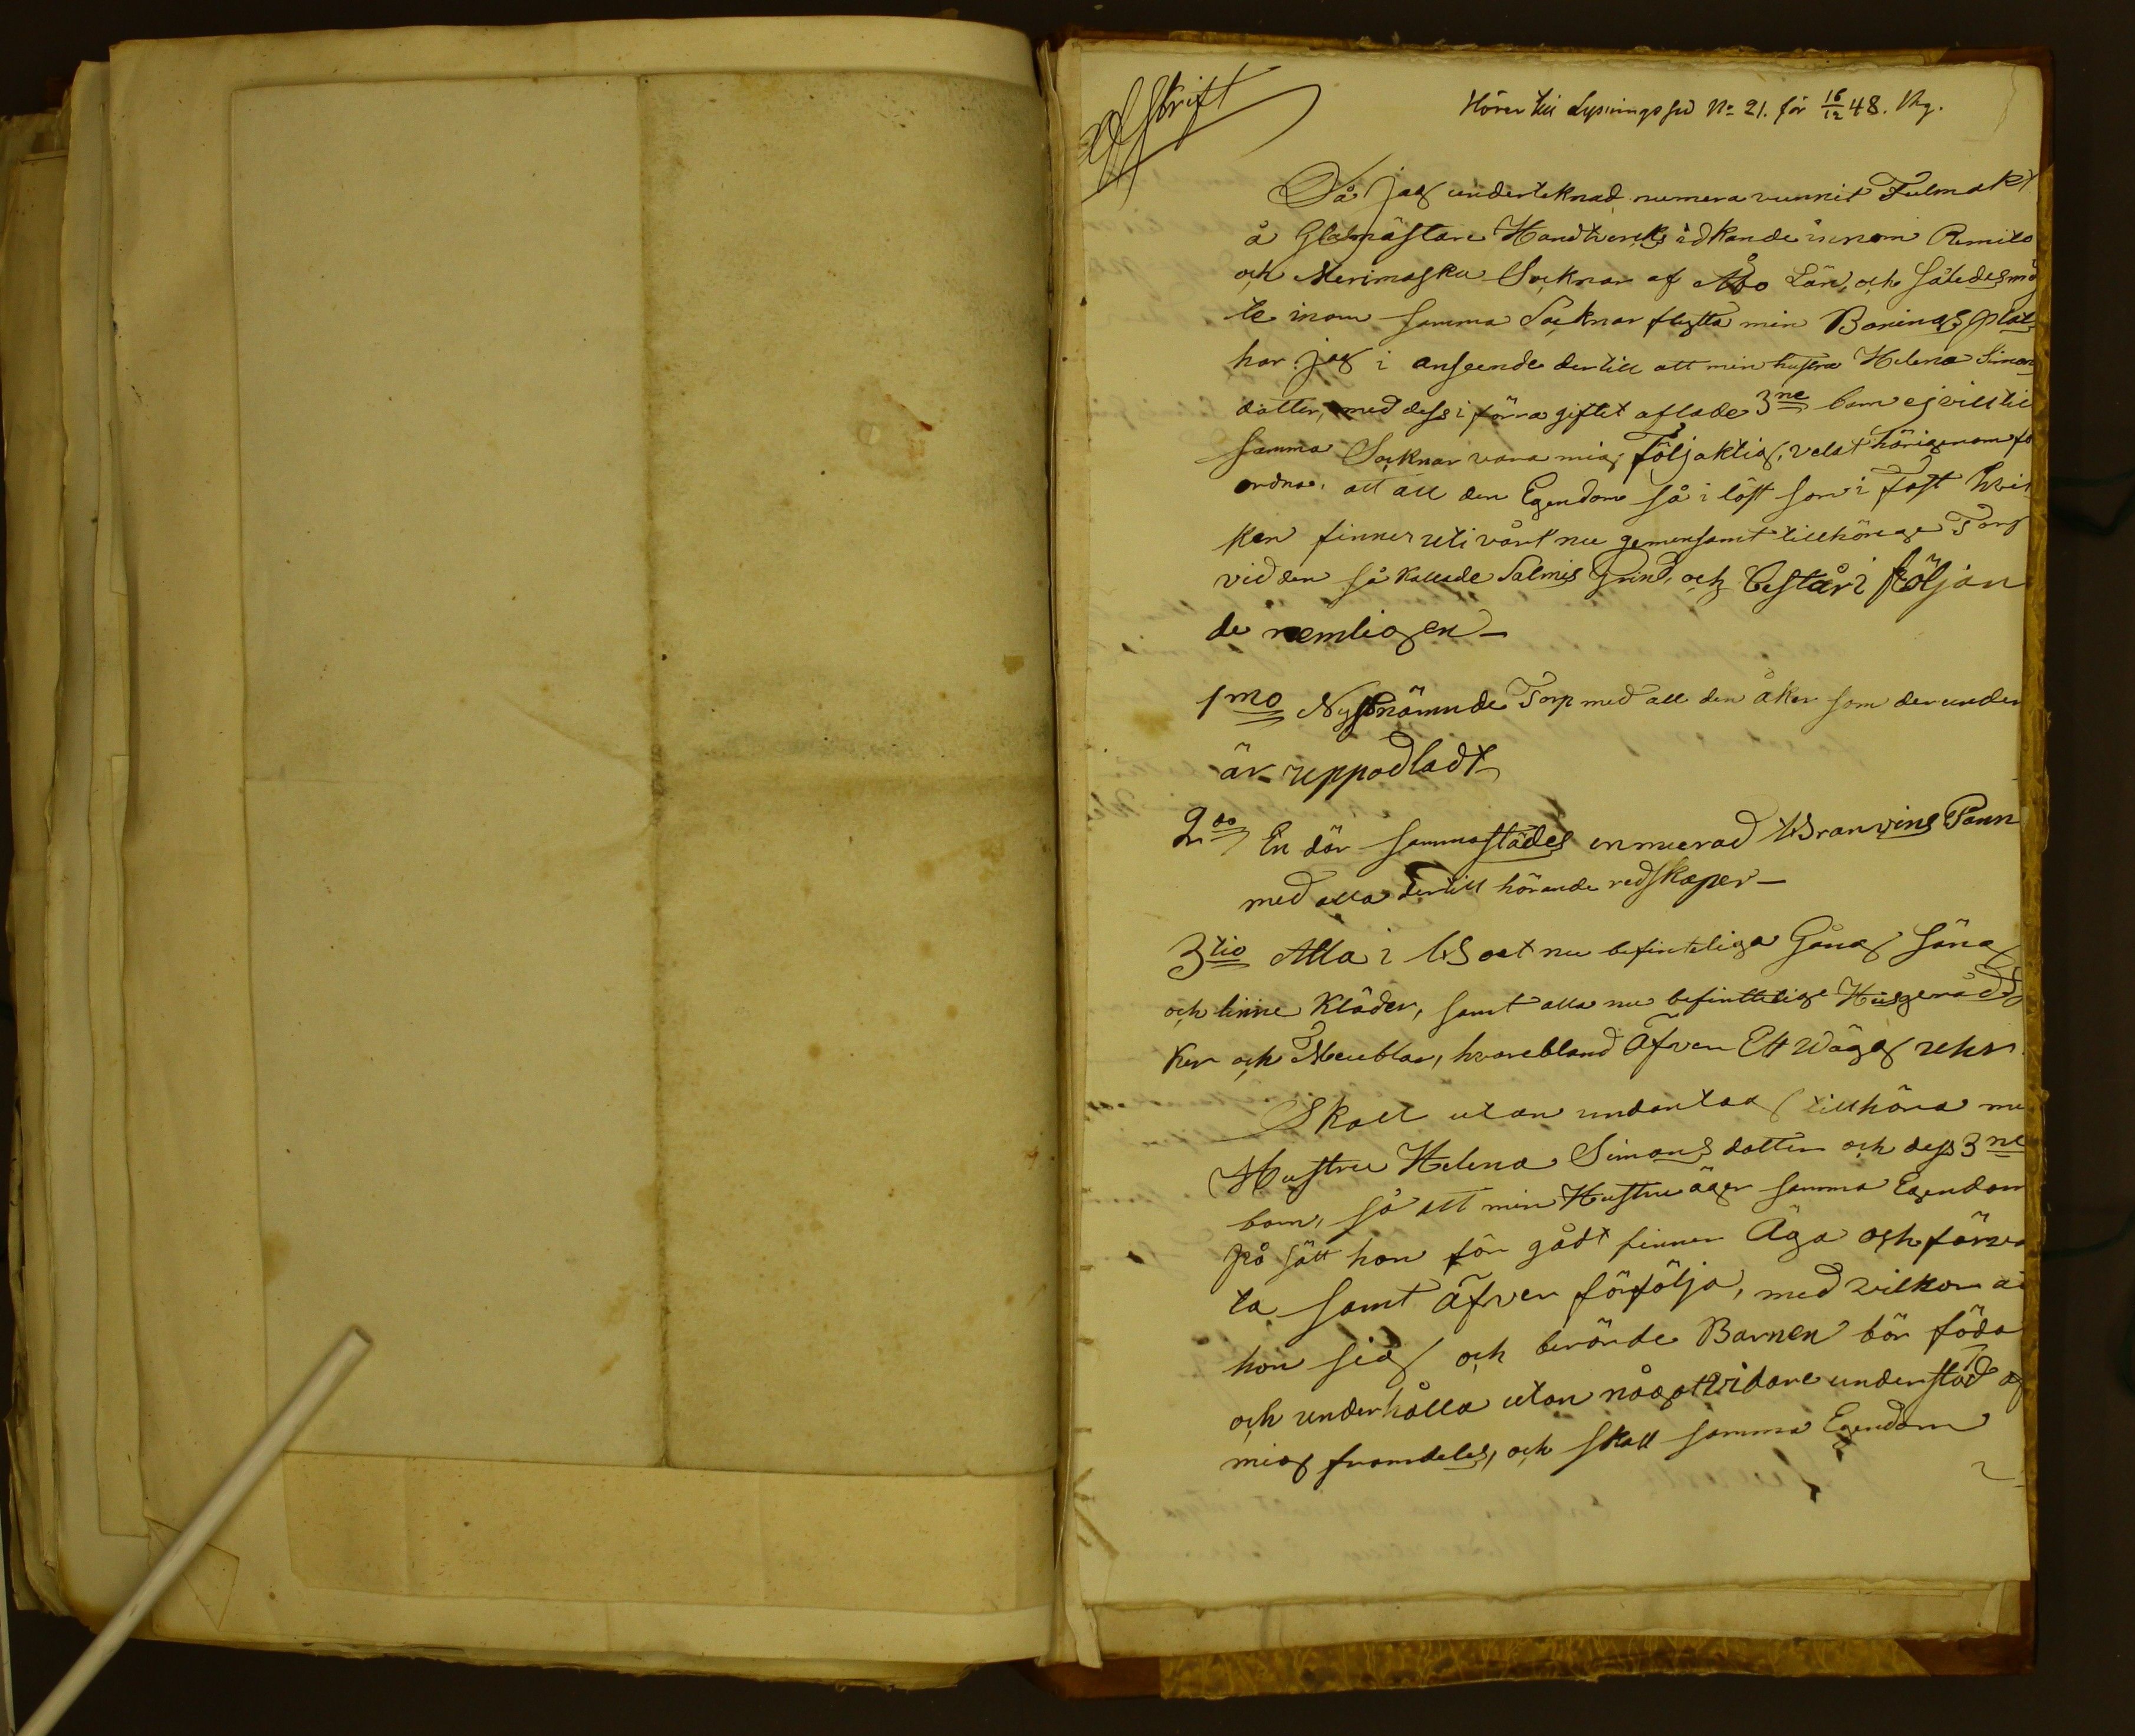 Afskrift
Hörer till Lysnings sed No 21. för 16/12 48. Vhg.
Då jag undertecknad numera vunnit Fulmakt
å Glasmästare Handtverks idkande innom Rimito
och Merimasku Socknar af Åbo Län, och således må
te inom samma Socknar flytta min Bonings plats
har jag i anseende dertill att min hustru Helena Simons
dotter, med dess i förra giftet aflade 3ne barn ej vill til
samma Socknar vara mig följaktig, velat härigenom fö
ordna, att all den Egendom så i löst som i Fast hvil
ken finnes uti vårt nu gemensamt tillhörige Torp
vid den så kallade Salmis Grind, och består i följan
de nemligen –
1mo Nyssnämnde Torp med all den åker som derunder
är uppodladt
2do En där sammastädes inmurad Branvins Pann
med alla dertill hörande redskaper –
3tio Alla i Boet nu befintliga Gång Säng
och linne Kläder, samt alla nu befinttelige Husgeråds
ker och Meublar, hvarebland äfven Ett Vägg uhr.
Skall utan undantag tillhöra mi
Hustru Helena Simons dotter och dess 3ne
barn, så att min Hustru äger samma Egendom
på sätt hon för gådt finner Äga och förva
ta samt äfven förfölja, med vilkor at
hon sig och berörde Barnen bör föda
och underhålla utan något vidare understöd af
mig framdeles, och skall samma Egendom